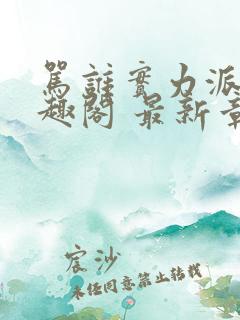 罵誰實力派
趣閣 最新章
宸沙
未經同意禁止轉載